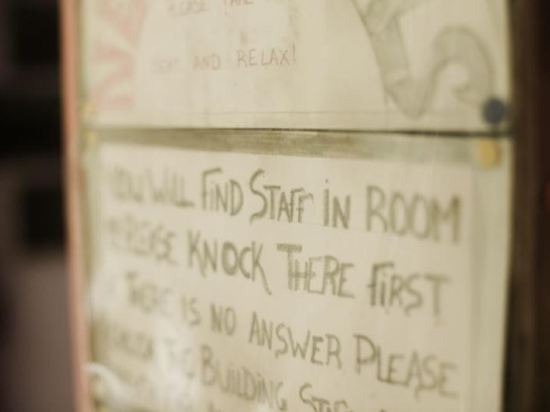 NE
PLEASE TAKE
SEAT AND RELAX!
YOU WILL FIND STAFF IN ROOM
PLEASE KNOCK THERE FIRST
THERE IS NO ANSWER PLEASE
THE BUILDING